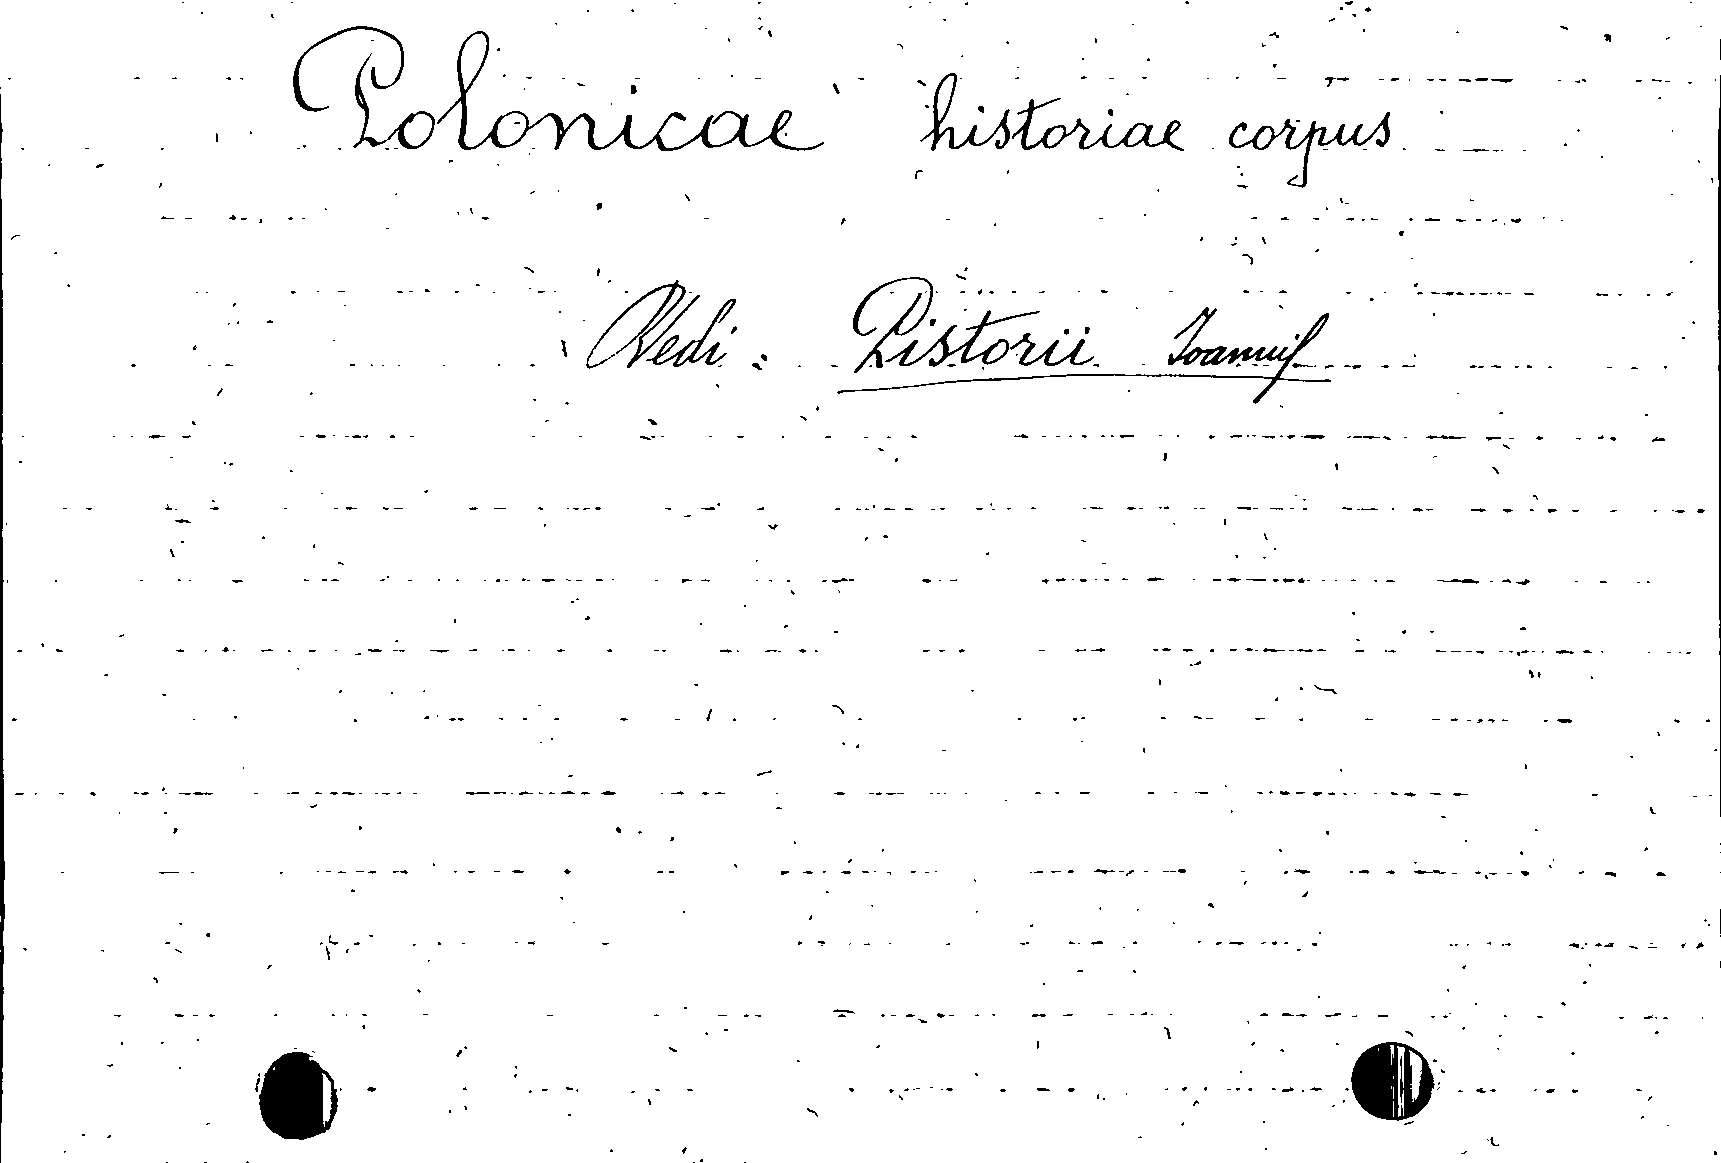 Polonicae historiae corpus
Vedi: Pistorii Ioannis